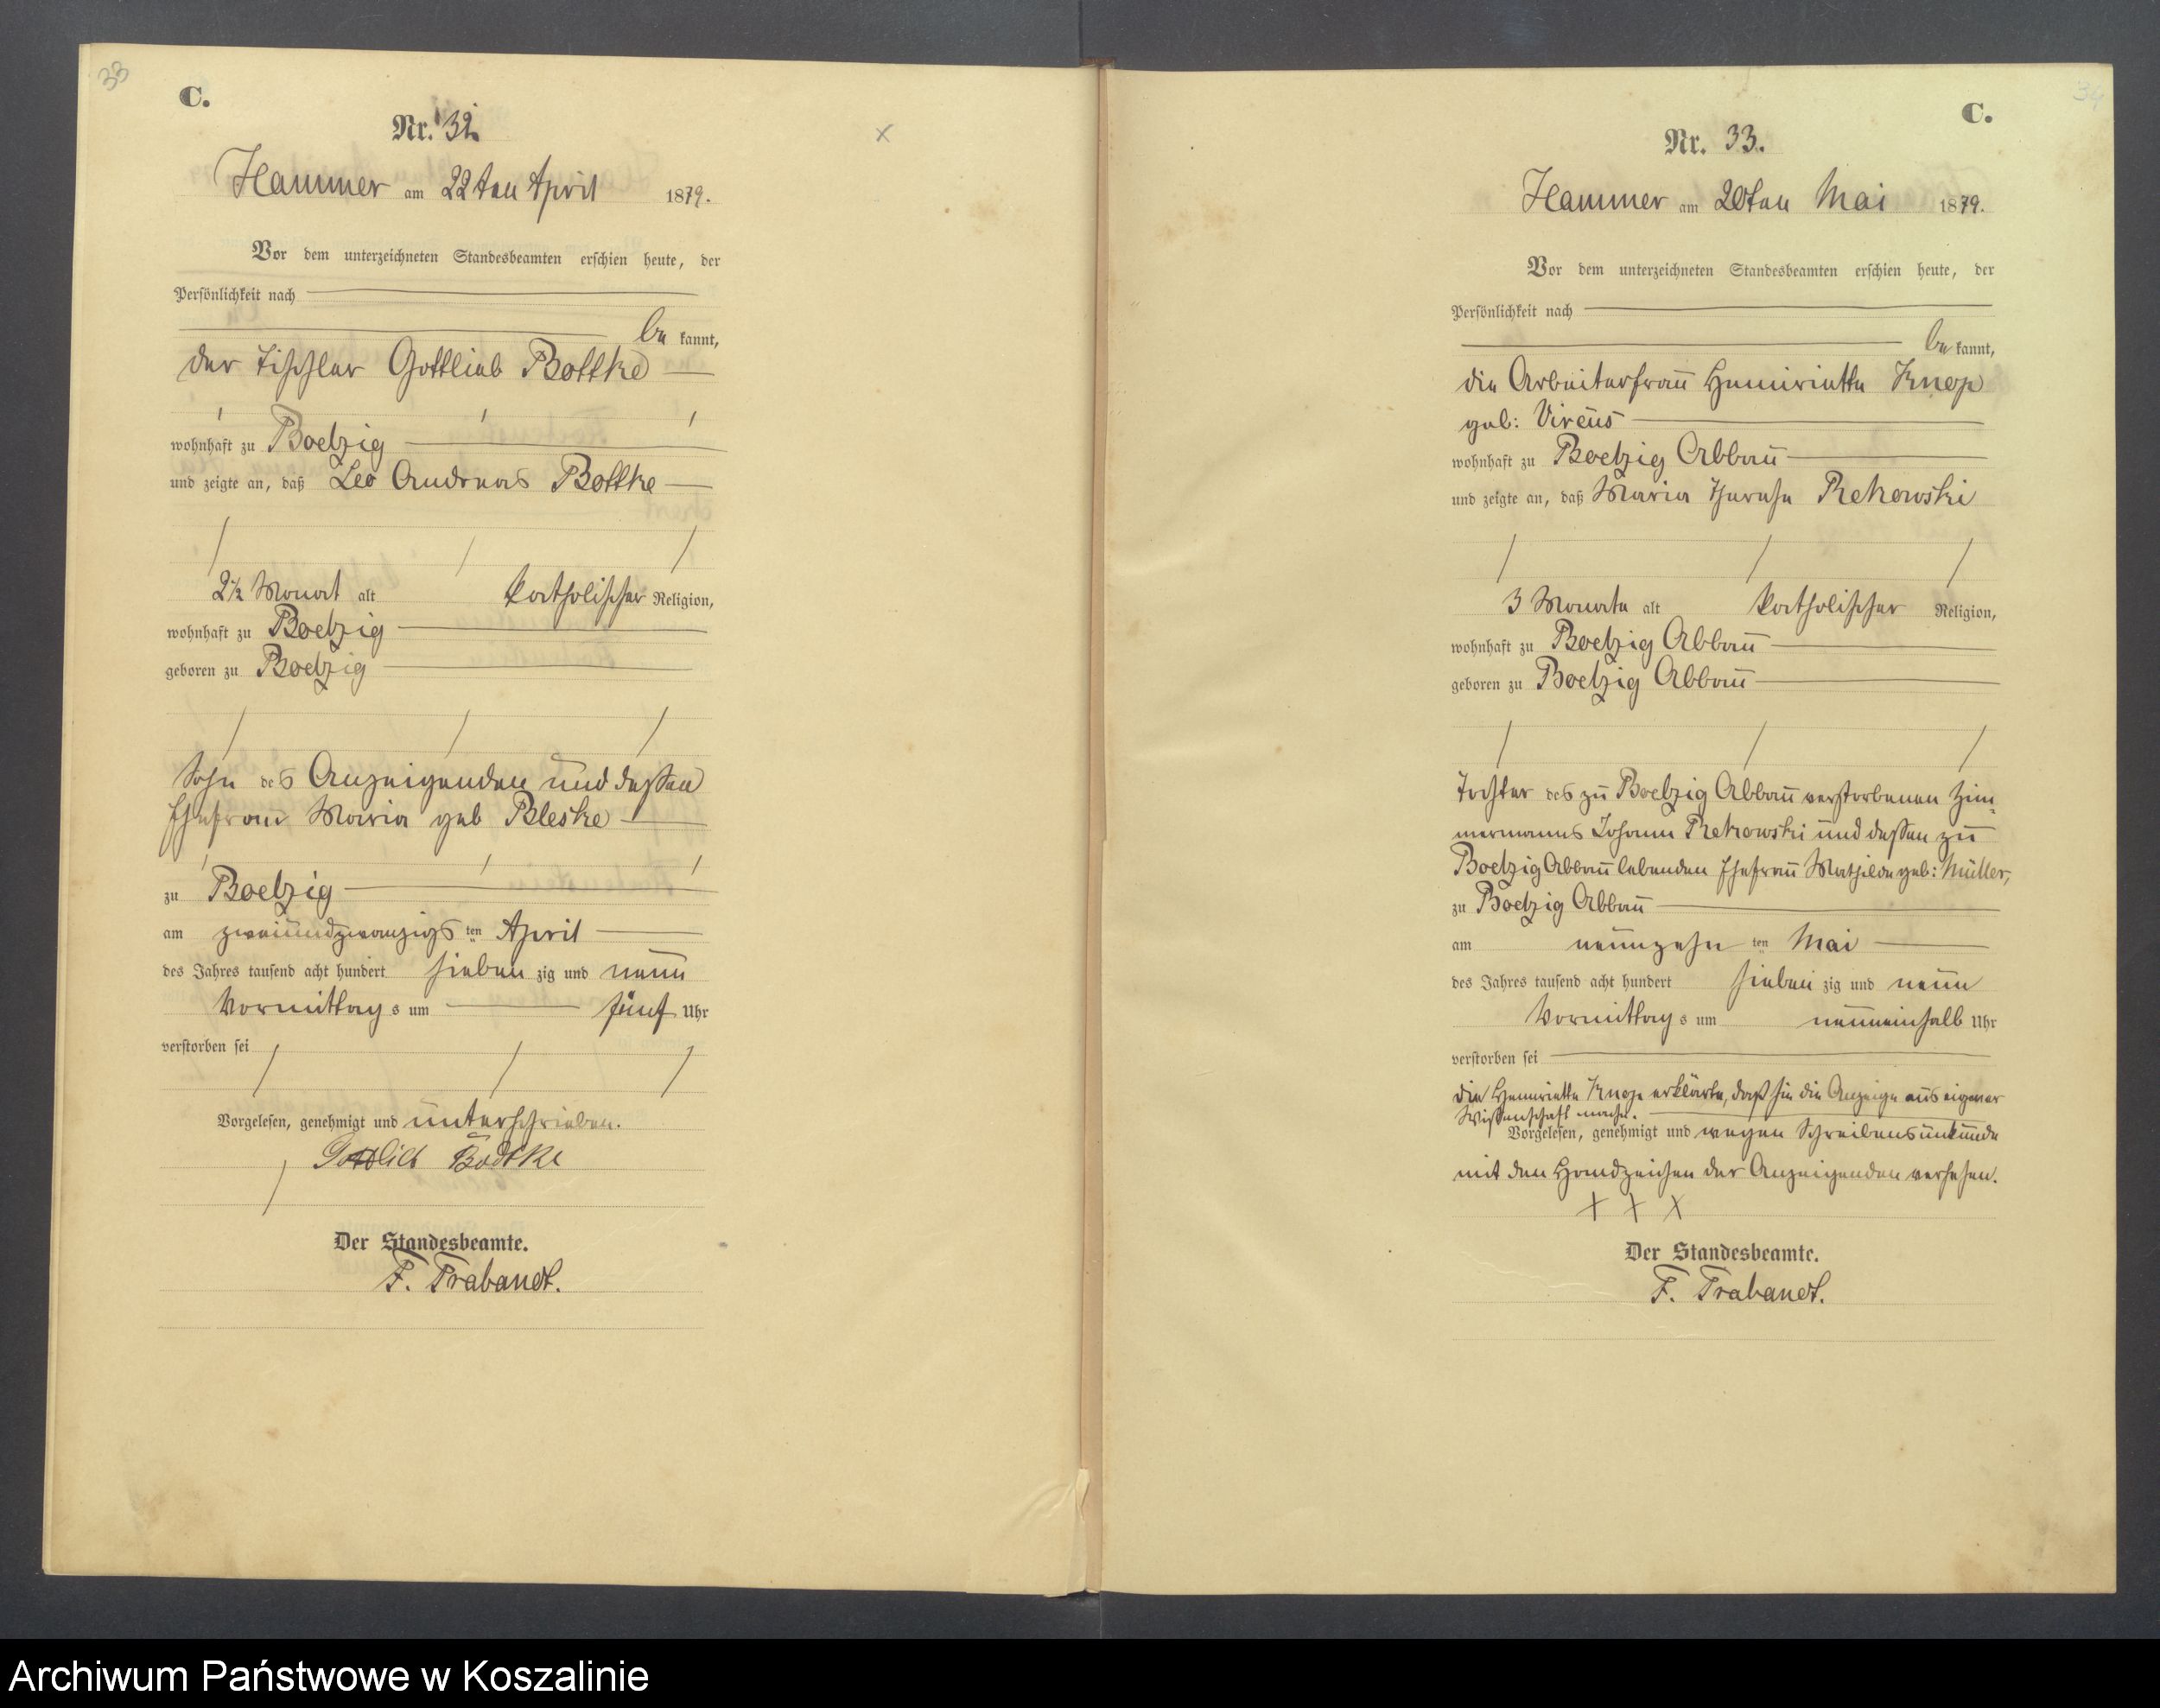 33
C.
Nr. 32.
Hammer am 22ten April 1879.
Vor dem unterzeichneten Standesbeamten erschien heute, der
Persönlichkeit nach
be kannt,
der Tischler Gottlieb Bottke
wohnhaft zu Boetzig
und zeigte an, daß Leo Andreas Bottke
2½ Monat alt katholischer Religion,
wohnhaft zu Boetzig
geboren zu Boetzig
Sohn des Anzeigenden und dessen
Ehefrau Maria geb Bleske
zu Boetzig
am zweiundzwanzigsten April
des Jahres tausend acht hundert siebenzig und neun
Vormittags um fünf Uhr
verstorben sei
Vorgelesen, genehmigt und unterschrieben.
Gottlieb Bodtke
Der Standesbeamte.
F. Trabandt.
34
C.
Nr. 33.
Hammer am 20ten Mai 1879.
Vor dem unterzeichneten Standesbeamten erschien heute, der
Persönlichkeit nach
be kannt,
die Arbeiterfrau Hennriette Knop
geb: Vireus
wohnhaft zu Boetzig Abbau
und zeigte an, daß Maria Therese Rekowski
3 Monate alt katholischer Religion,
wohnhaft zu Boetzig Abbau
geboren zu Boetzig Abbau
Tochter des zu Boetzig Abbau verstorbenen Zim-
mermanns Johann Rekowski und dessen zu
Boetzig Abbau lebenden Ehefrau Mathilde geb: Müller,
zu Boetzig Abbau
am neunzehnten Mai
des Jahres tausend acht hundert siebenzig und neun
Vormittags um neuneinhalb Uhr
verstorben sei
die Hennriette Knop erklärte, daß sie die Anzeige aus eigener
Wissenschaft mache.
Vorgelesen, genehmigt und wegen Schreibensunkunde
mit den Handzeichen der Anzeigenden versehen.
X X X
Der Standesbeamte.
F. Trabandt.
Archiwum Państwowe w Koszalinie